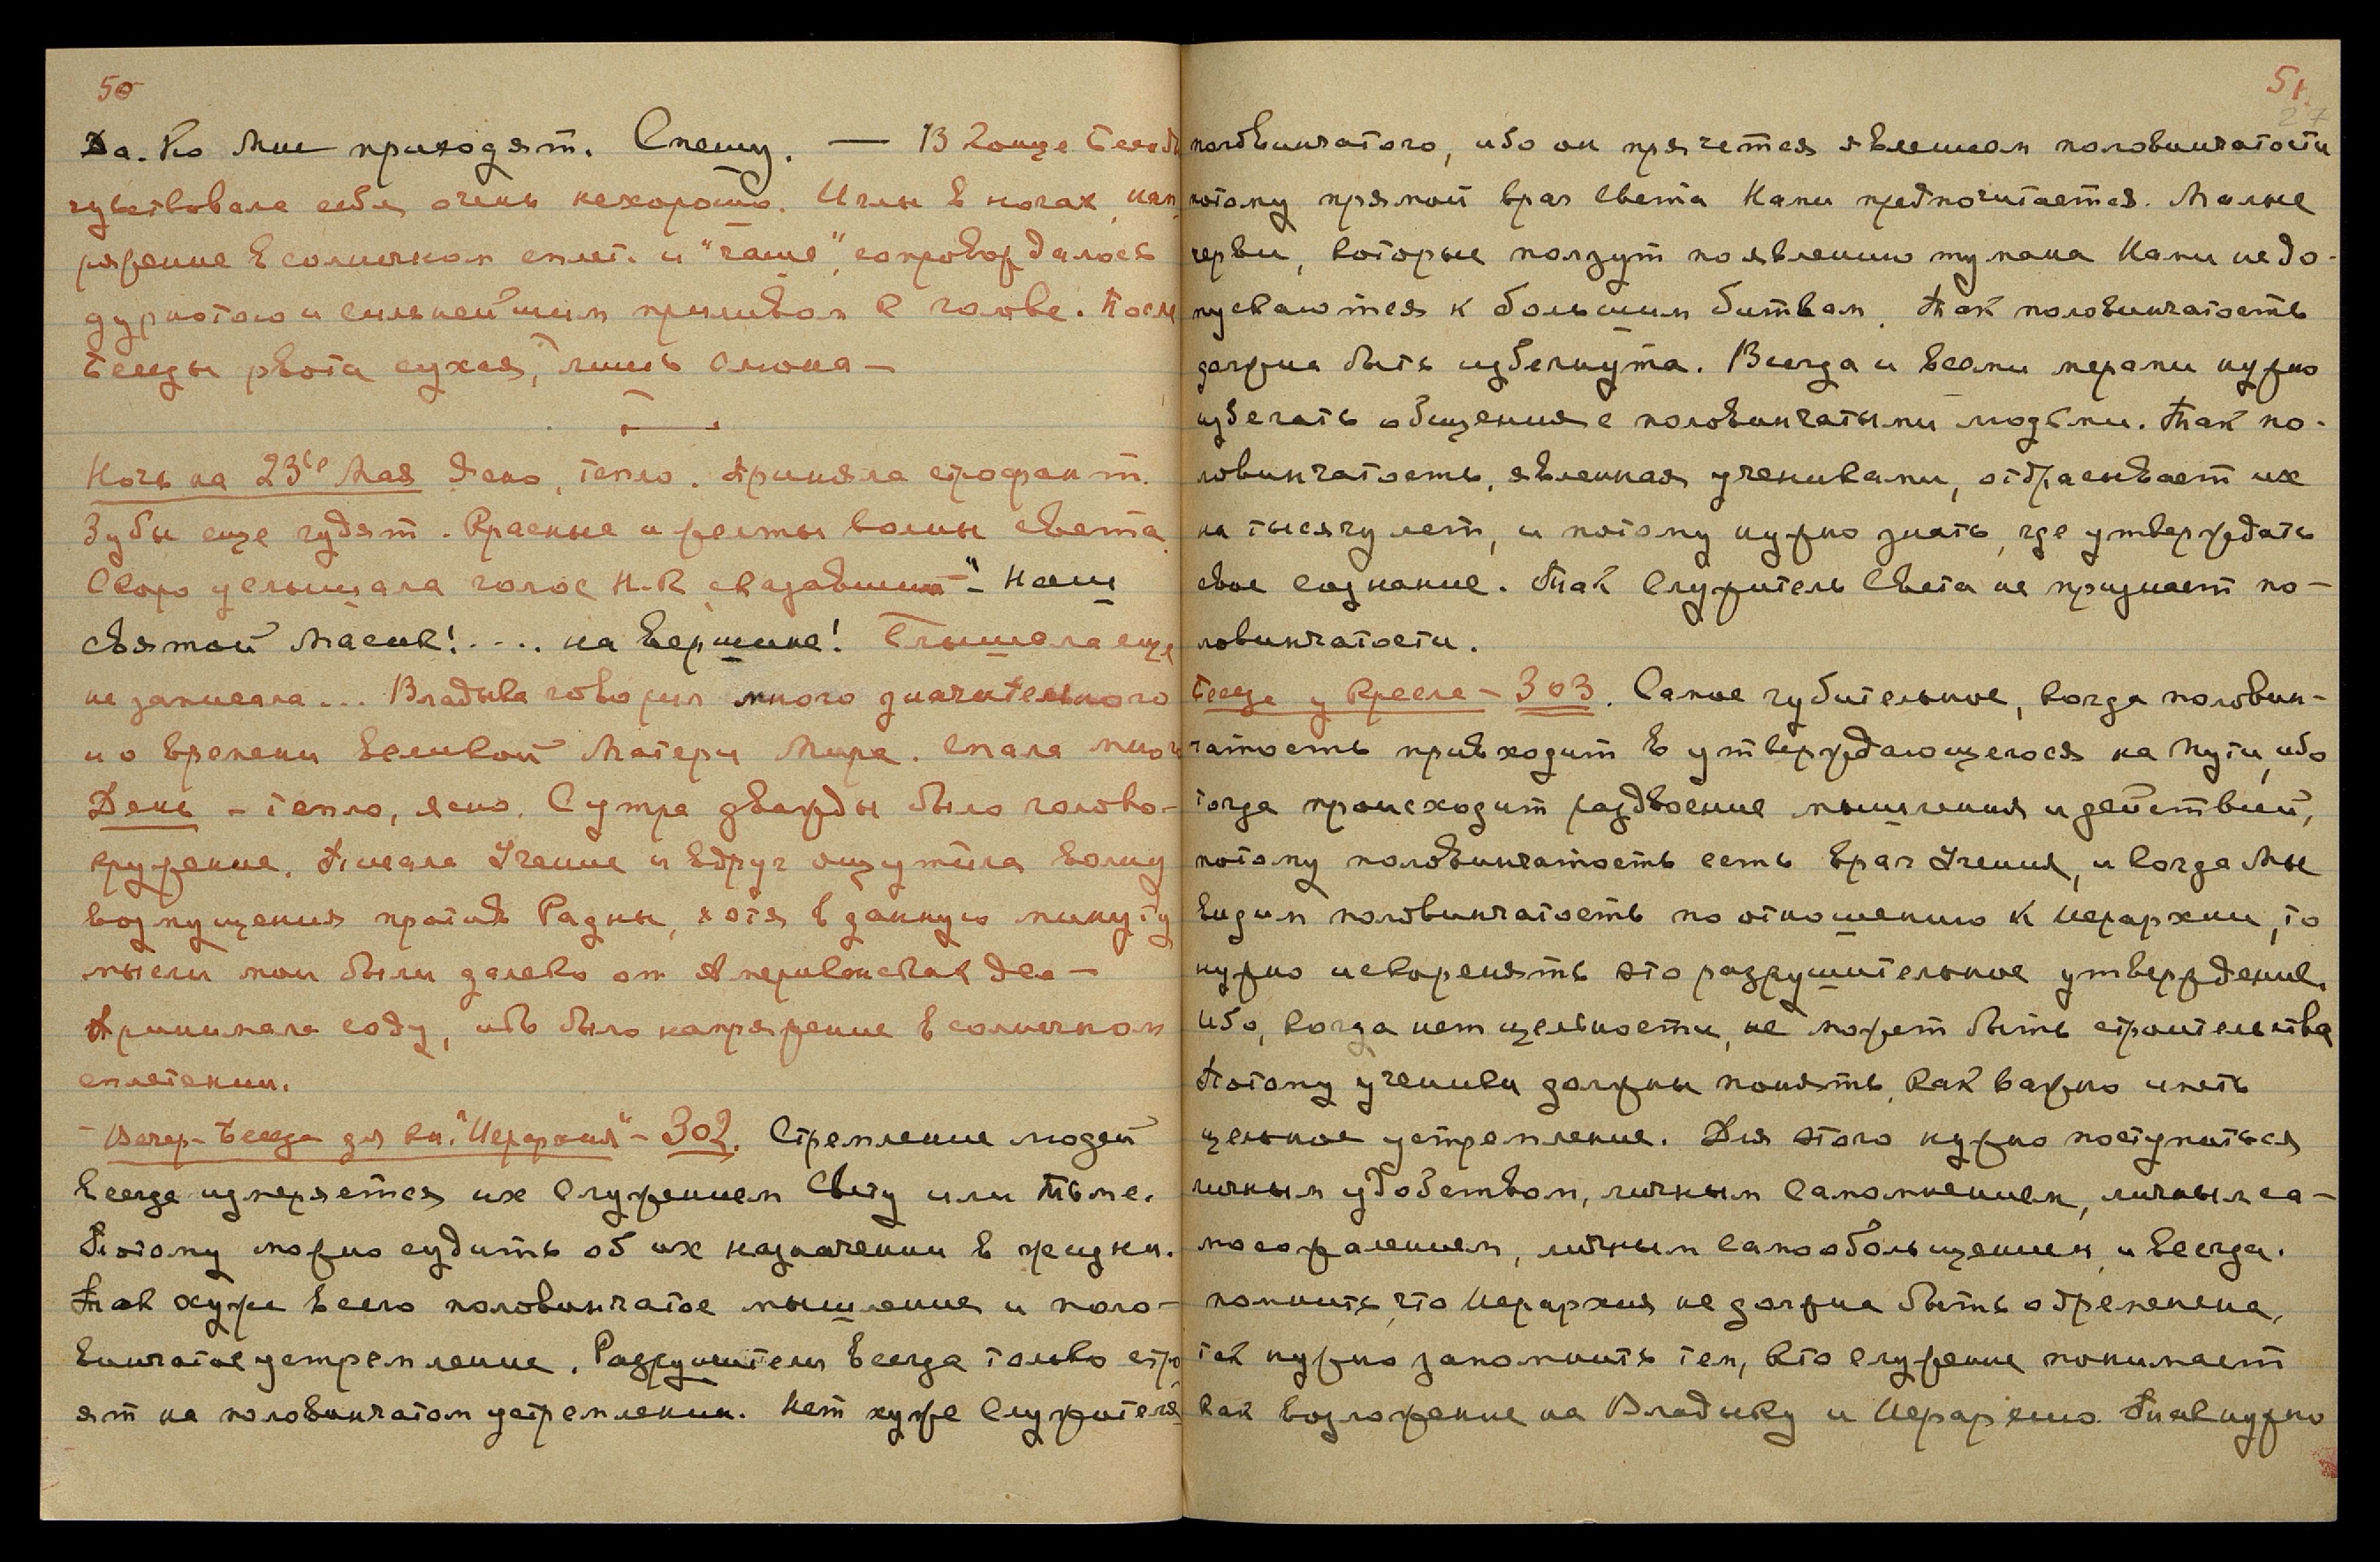 50
Да. Ко Мне приходят. Спешу. — В конце Беседы
чувствовала себя очень нехорошо. Иглы в ногах, нап
ряжение в солнечном сплет. и "чаше", сопровождалось
дурнотою и сильнейшим приливом к голове. После
Беседы рвота сухая, лишь слюна —
Ночь на 23ье Мая Ясно, тепло. Приняла строфант.
Зубы еще гудят. Красные и желтые волны света.
Скоро услышала голос Н.К. сказавший — "Наш
святой Масик! .... на вершине! Слышала еще
не записала... Владыка говорил много значительного
и о времени Великой Матери Мира. Спала мног
День — тепло, ясно. С утра дважды было голово-
кружение. Писала Учение и вдруг ощутила волну
возмущения против Радны, хотя в данную минуту
мысли мои были далеко от Американских дел —
Принимала соду, ибо было напряжение в солнечном
сплетении.
— Вечер — Беседа для кн. "Иерархия" — 302. Стремление людей
всегда измеряется их служением Свету или Тьме.
Потому можно судить об их назначении в жизни.
Так хуже всего половинчатое мышление и поло-
винчатое устремление. Разрушители всегда только стро
ят на половинчатом устремлении. Нет хуже Служителя
51.
27
половинчатого, ибо он прячется явлением половинчатости
потому прямой враг Света Нами предпочитается. Малые
черви, которые ползут по явлению тумана Нами не до-
пускаются к большим битвам. Так половинчатость
должна быть избегнута. Всегда и всеми мерами нужно
избегать общения с половинчатыми людьми. Так по-
ловинчатость, явленная учениками, отбрасывает их
на тысячу лет, и потому нужно знать, где утверждать
свое сознание. Так Служитель Света не признает по-
ловинчатости.
Беседа у Кресла — 303. Самое губительное, когда половин-
чатость привходит в утверждающегося на Пути, ибо
тогда происходит раздвоение мышления и действий,
потому половинчатость есть враг Учения, и когда Мы
видим половинчатость по отношению к Иерархии, то
нужно искоренять это разрушительное утверждение.
Ибо, когда нет цельности, не может быть строительства
Потому ученики должны понять, как важно иметь
цельное устремление. Для этого нужно поступиться
личным удобством, личным самомнением, личным са-
мосожалением, личным самообольщением, и всегда.
помнить, что Иерархия не должна быть обременена,
так нужно запомнить тем, кто служение понимает
как возложение на Владыку и Иерархию. Так нужно